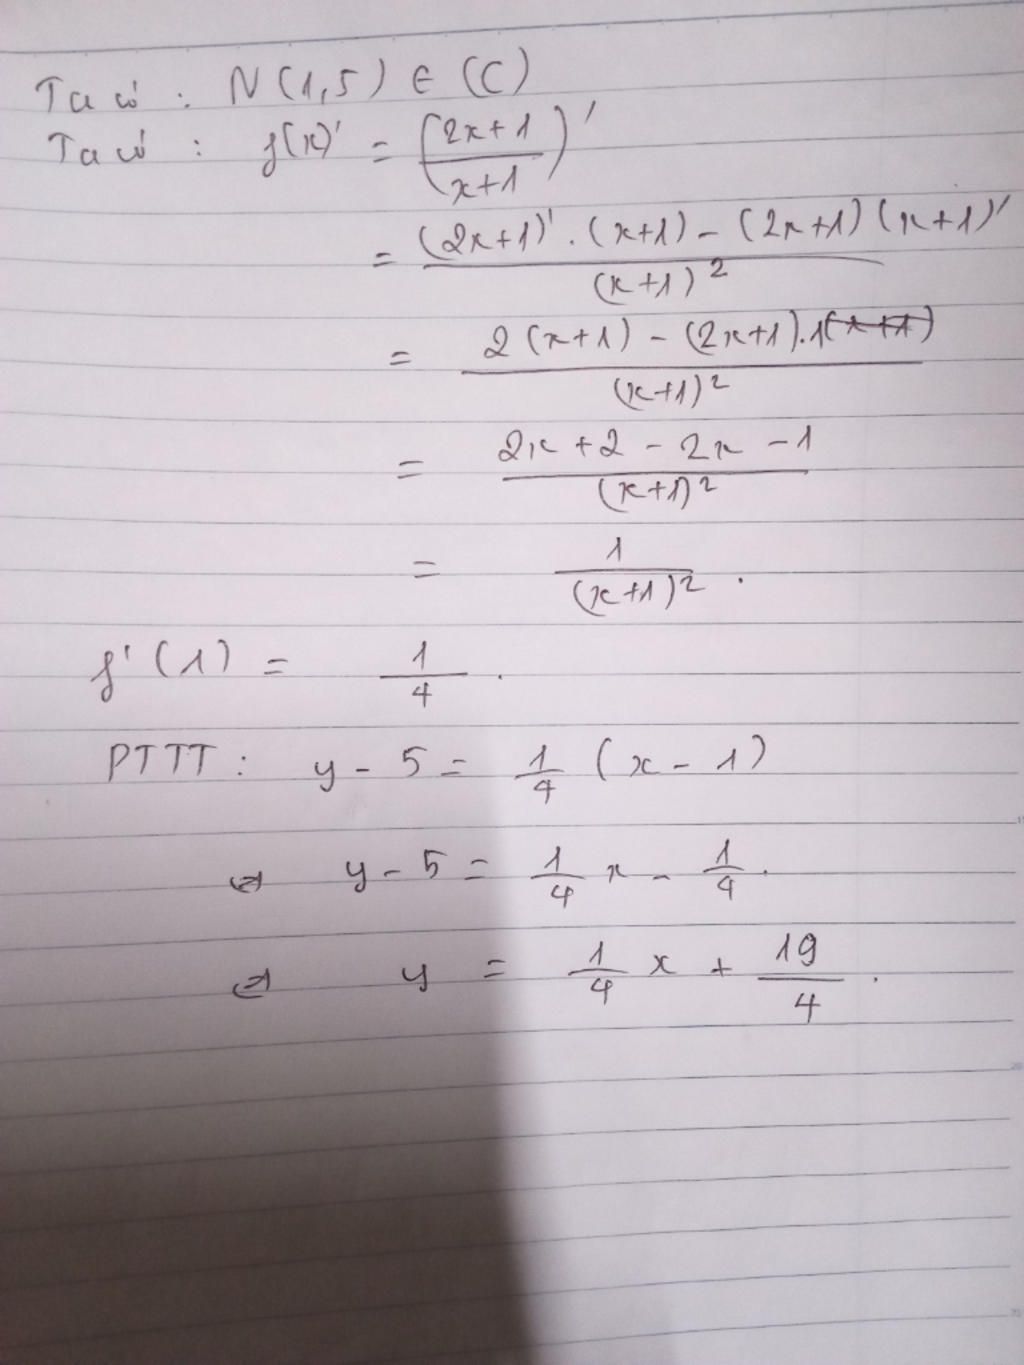 Ta có : N(1,5) ∈ (C)
Ta có : f(x)' = ((2x+1)/(x+1))'
= ((2x+1)'.(x+1) - (2x+1)(x+1)')/(x+1)²
= (2(x+1) - (2x+1).1)/(x+1)²
= (2x+2-2x-1)/(x+1)²
= 1/(x+1)².
f'(1) = 1/4.
PTTT: y-5 = 1/4 (x-1)
⇔ y-5 = 1/4 x - 1/4.
⇔ y = 1/4 x + 19/4.